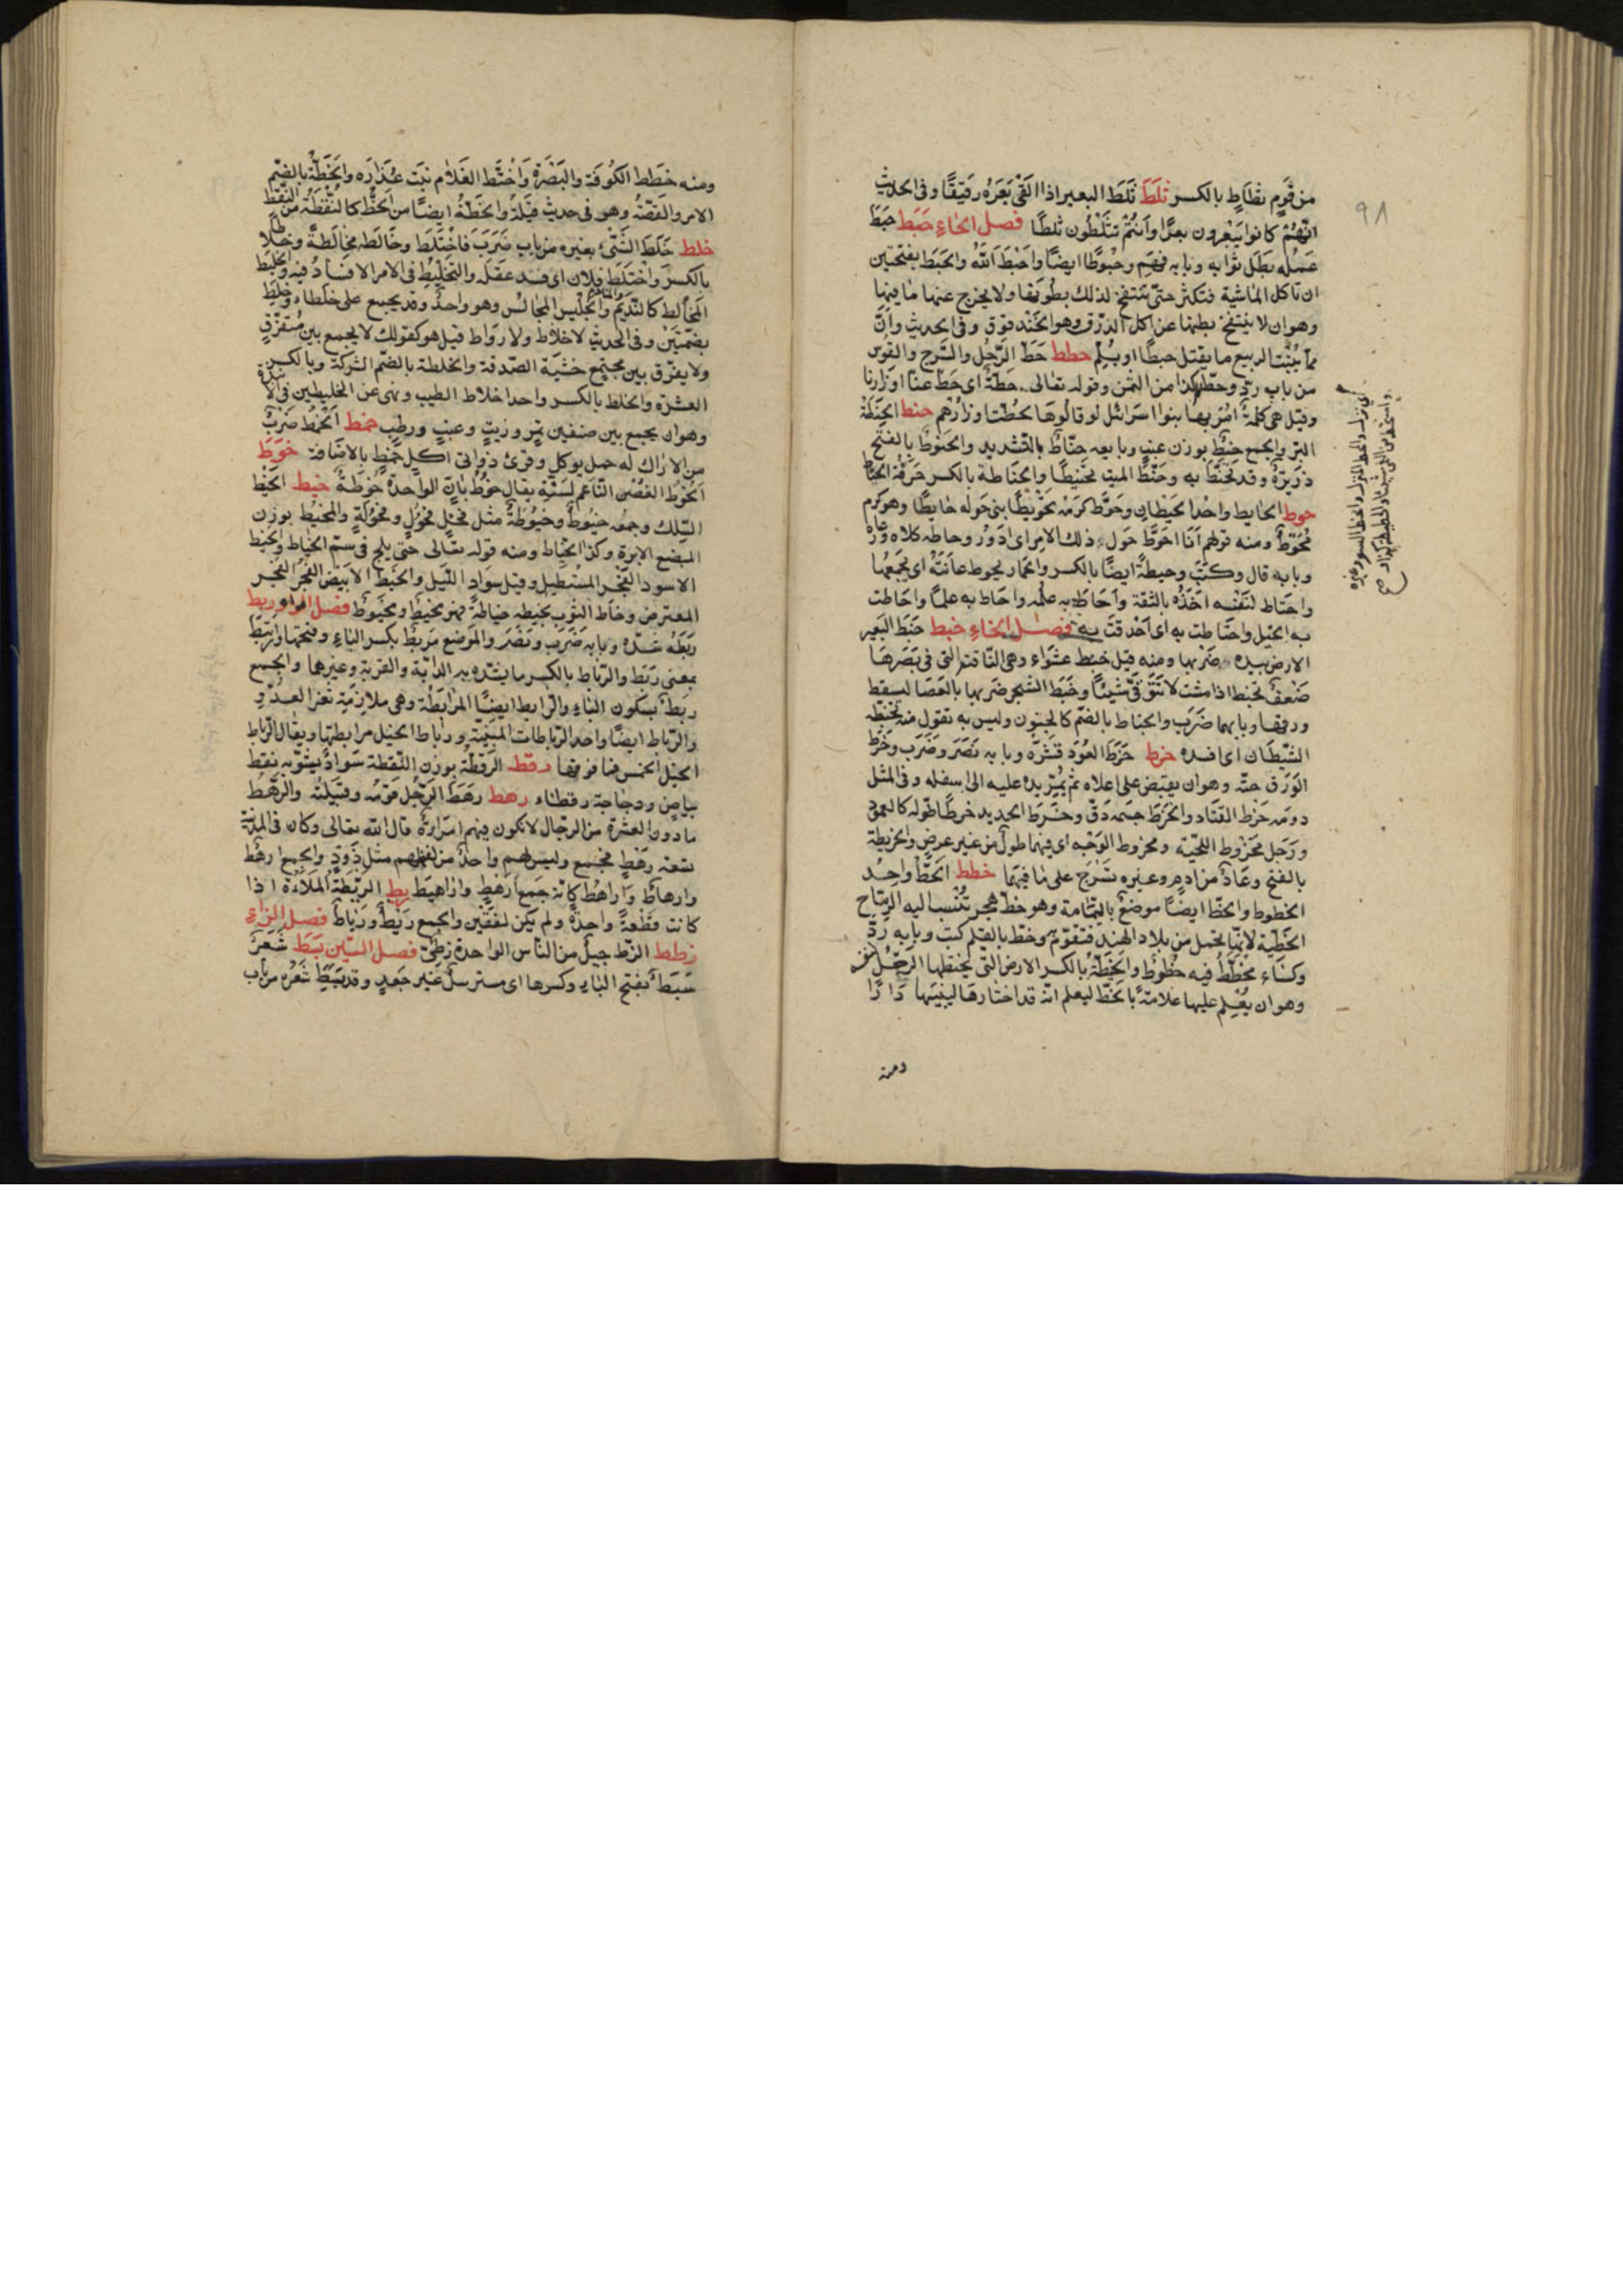 ٩٨
من قوم ثطاط بالكسر ثلط ثلط البعير اذا القى بعره رقيقا وفى الحديث
انهم كانوا يبعرون بعرا وانتم تثلطون ثلطا فصل الحاء حبط حبط
عمله بطل ثوابه وبابه فهم وحبوطا ايضا واحبط الله والحبط بفتحتين
ان تاكل الماشية فتكثر حتى تنتفخ لذلك بطونها ولا يخرج عنها ما فيها
وهو ان لا ينتفخ بطنها عن اكل الذرق وهو الحندقوق وفى الحديث وان
مما ينبت الربيع ما يقتل حبطا او يلم حطط حط الرجل والسرج والقوس
من باب رد وحط كذا من الثمن وقوله تعالى حطة اى حط عنا اوزارنا
وقيل هى كلمة امر بها بنوا اسرائل لو قالوها لحطت اوزارهم حنط الحنطة
البر والجمع حنط بوزن عنب وبايعه حناط بالتشديد والحنوط بالفتح
ذريرة وقد تحنط به وحنط الميت تحنيطا والحناطة بالكسر حرفة الحناط
حوط الحايط واحد الحيطان وحوط كرمه تحويطا بنى حوله حايطا وهو كرم
محوط ومنه قولهم انا احوط حول ذلك الامر اى ادور وحاطه كلاه ورعاه
وبابه قال وكتب وحيطة ايضا بالكسر والحمار يحوط عانته اى يجمعها
واحتاط لنفسه اخذه بالثقة واحاط به علمه واحاط به علما واحاطت
به الخيل واحتاطت به اى احدقت به فصل الخاء خبط خبط البعير
الارض بيده ضربها ومنه قيل خبط عشواء وهى الناقة التى فى بصرها
ضعف تخبط اذا مشت لا تتوقى شيئا وخبط الشجر ضربها بالعصا ليسقط
ورقها وبابهما ضرب والخباط بالضم كالجنون وليس به تقول منه تخبطه
الشيطان اى افسده خرط خرط العود قشره وبابه نصر وضرب وخرط
الورق حته وهو ان يقبض على اعلاه ثم يمر يده عليه الى اسفله وفى المثل
دونه خرط القتاد واخرط جسمه دق وخرط الحديد خرطا طوله كالعمود
ورجل مخروط اللحية ومخروط الوجه اى فيهما طول من غير عرض والخريطة
بالفتح وعاء من ادم وغيره تشرج على ما فيها خطط الخط واحد
الخطوط والخط ايضا موضع باليمامة وهو خط هجر تنسب اليه الرماح
الخطية لانها تحمل من بلاد الهند فتقوم وخط بالقلم كتب وبابه رد
وكساء مخطط فيه خطوط والخطة بالكسر الارض التى يختطها الرجل لنفسه
وهو ان يعلم عليها علامة بالخط ليعلم انه قد اختارها ليبنيها دارا
ومنه
ومنه خطط الكوفة والبصرة واختط الغلام نبت عذاره والخطة بالضم
الامر والقصة وهو فى حديث قيلة والخطة ايضا من الخط كالنقطة من النقط
خلط خلط الشئ بغيره من باب ضرب فاختلط وخالطه مخالطة وخلاطا
بالكسر واختلط فلان اى فسد عقله والتخليط فى الامر الافساد فيه والخليط
المخالط كالنديم المنادم والجليس المجالس وهو واحد وقد يجمع على خلطاء وخلط
بضمتين وفى الحديث لا خلاط ولا رواط قيل هو كقولك لا يجمع بين متفرق
ولا يفرق بين مجتمع خشية الصدقة والخلطة بالضم الشركة وبالكسر
العشرة والخلط بالكسر واحد اخلاط الطيب ونهى عن الخليطين فى الانبذة
وهو ان يجمع بين صنفين تمر وزبيب وعنب ورطب خمط الخمط ضرب
من الاراك له حمل يوكل وقرئ ذواتى اكل خمط بالاضافة خوط
الخوط الغصن الناعم لسنته يقال خوط بان الواحدة خوطة خيط الخيط
السلك وجمعه خيوط وخيوطة مثل فحل فحول وفحولة والمخيط بوزن
المبضع الابرة وكذا الخياط ومنه قوله تعالى حتى يلج فى سم الخياط والخيط
الاسود الفجر المستطيل وقيل سواد الليل والخيط الابيض الفجر الفجر
المعترض وخاط الثوب يخيطه خياطة فهو مخيط ومخيوط فصل الراء ربط
ربطه شده وبابه ضرب ونصر والموضع مربط بكسر الباء وفتحها وارتبط
بمعنى ربط والرباط بالكسر ما يشده به الدابة والقربة وغيرهما والجمع
ربط بسكون الباء والرابط ايضا المرابطة وهى ملازمة ثغر العدو
والرباط ايضا واحد الرباطات المبنية ورباط الخيل مرابطها ويقال الرباط
الخيل الخمس فما فوقها رقط الرقطة بوزن النقطة سواد يشوبه نقط
بياض ودجاجة رقطاء رهط رهط الرجل قومه وقبيلته والرهط
ما دون العشرة من الرجال لا يكون فيهم امراة قال الله تعالى وكان فى المدينة
تسعة رهط فجمع وليس لهم واحد من لفظهم مثل ذود والجمع ارهط
وارهاط واراهط كانه جمع ارهط واراهيط ريط الريطة الملاءة اذا
كانت قطعة واحدة ولم يكن لفقتين والجمع ريط ورياط فصل الزاء
زطط الزط جيل من الناس الواحدة زطى فصل السين سبط شعر
سبط بفتح الباء وكسرها اى مسترسل غير جعد وقد سبط شعره من باب